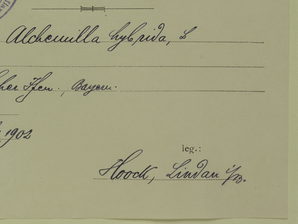 Alchemilla hybrida, L
Ifen., Bayern.
1902
leg.:
Hook, Lindau i/B.